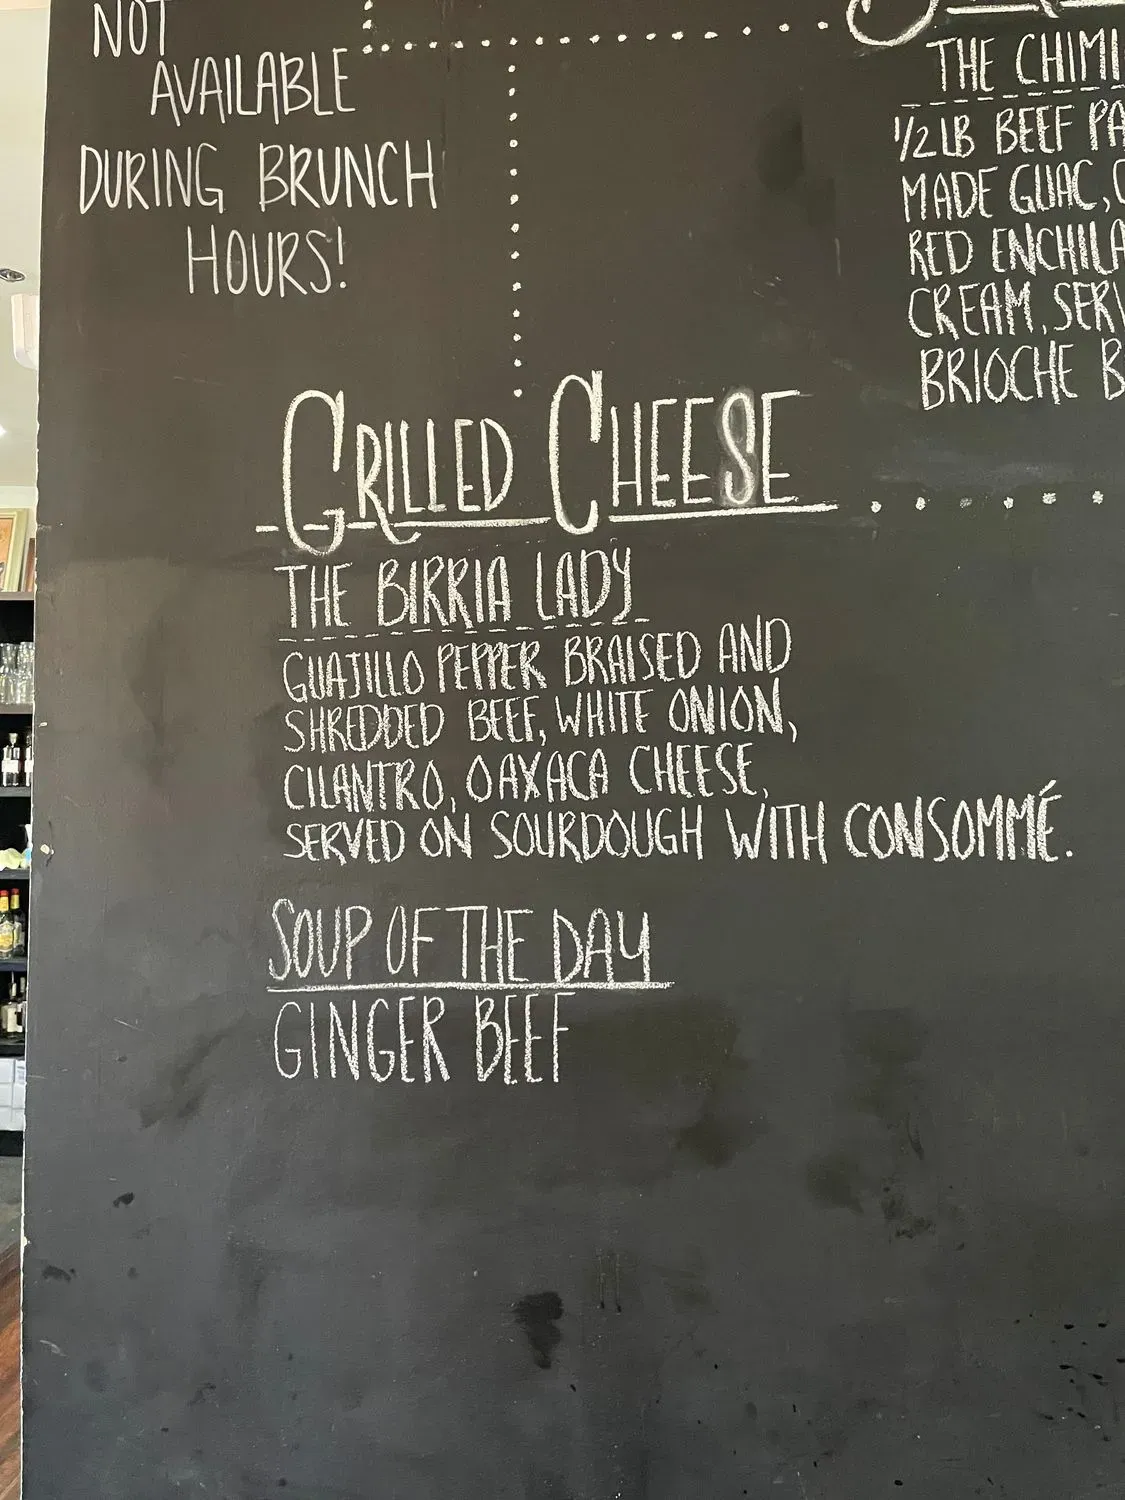 NOT
AVAILABLE
DURING BRUNCH
HOURS!
THE CHIMI
1/2 LB BEEF PA
MADE GUAC, C
RED ENCHILA
CREAM, SERV
BRIOCHE B
GRILLED CHEESE
THE BIRRIA LADY
GUAJILLO PEPPER BRAISED AND
SHREDDED BEEF, WHITE ONION,
CILANTRO, OAXACA CHEESE,
SERVED ON SOURDOUGH WITH CONSOMMÉ.
SOUP OF THE DAY
GINGER BEEF